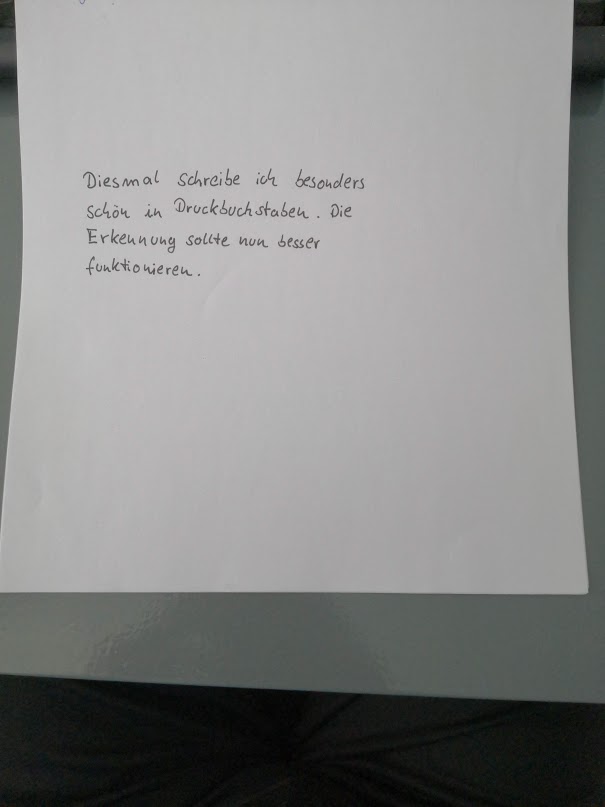 Diesmal schreibe ich besonders
schön in Druckbuchstaben. Die
Erkennung sollte nun besser
funktionieren.